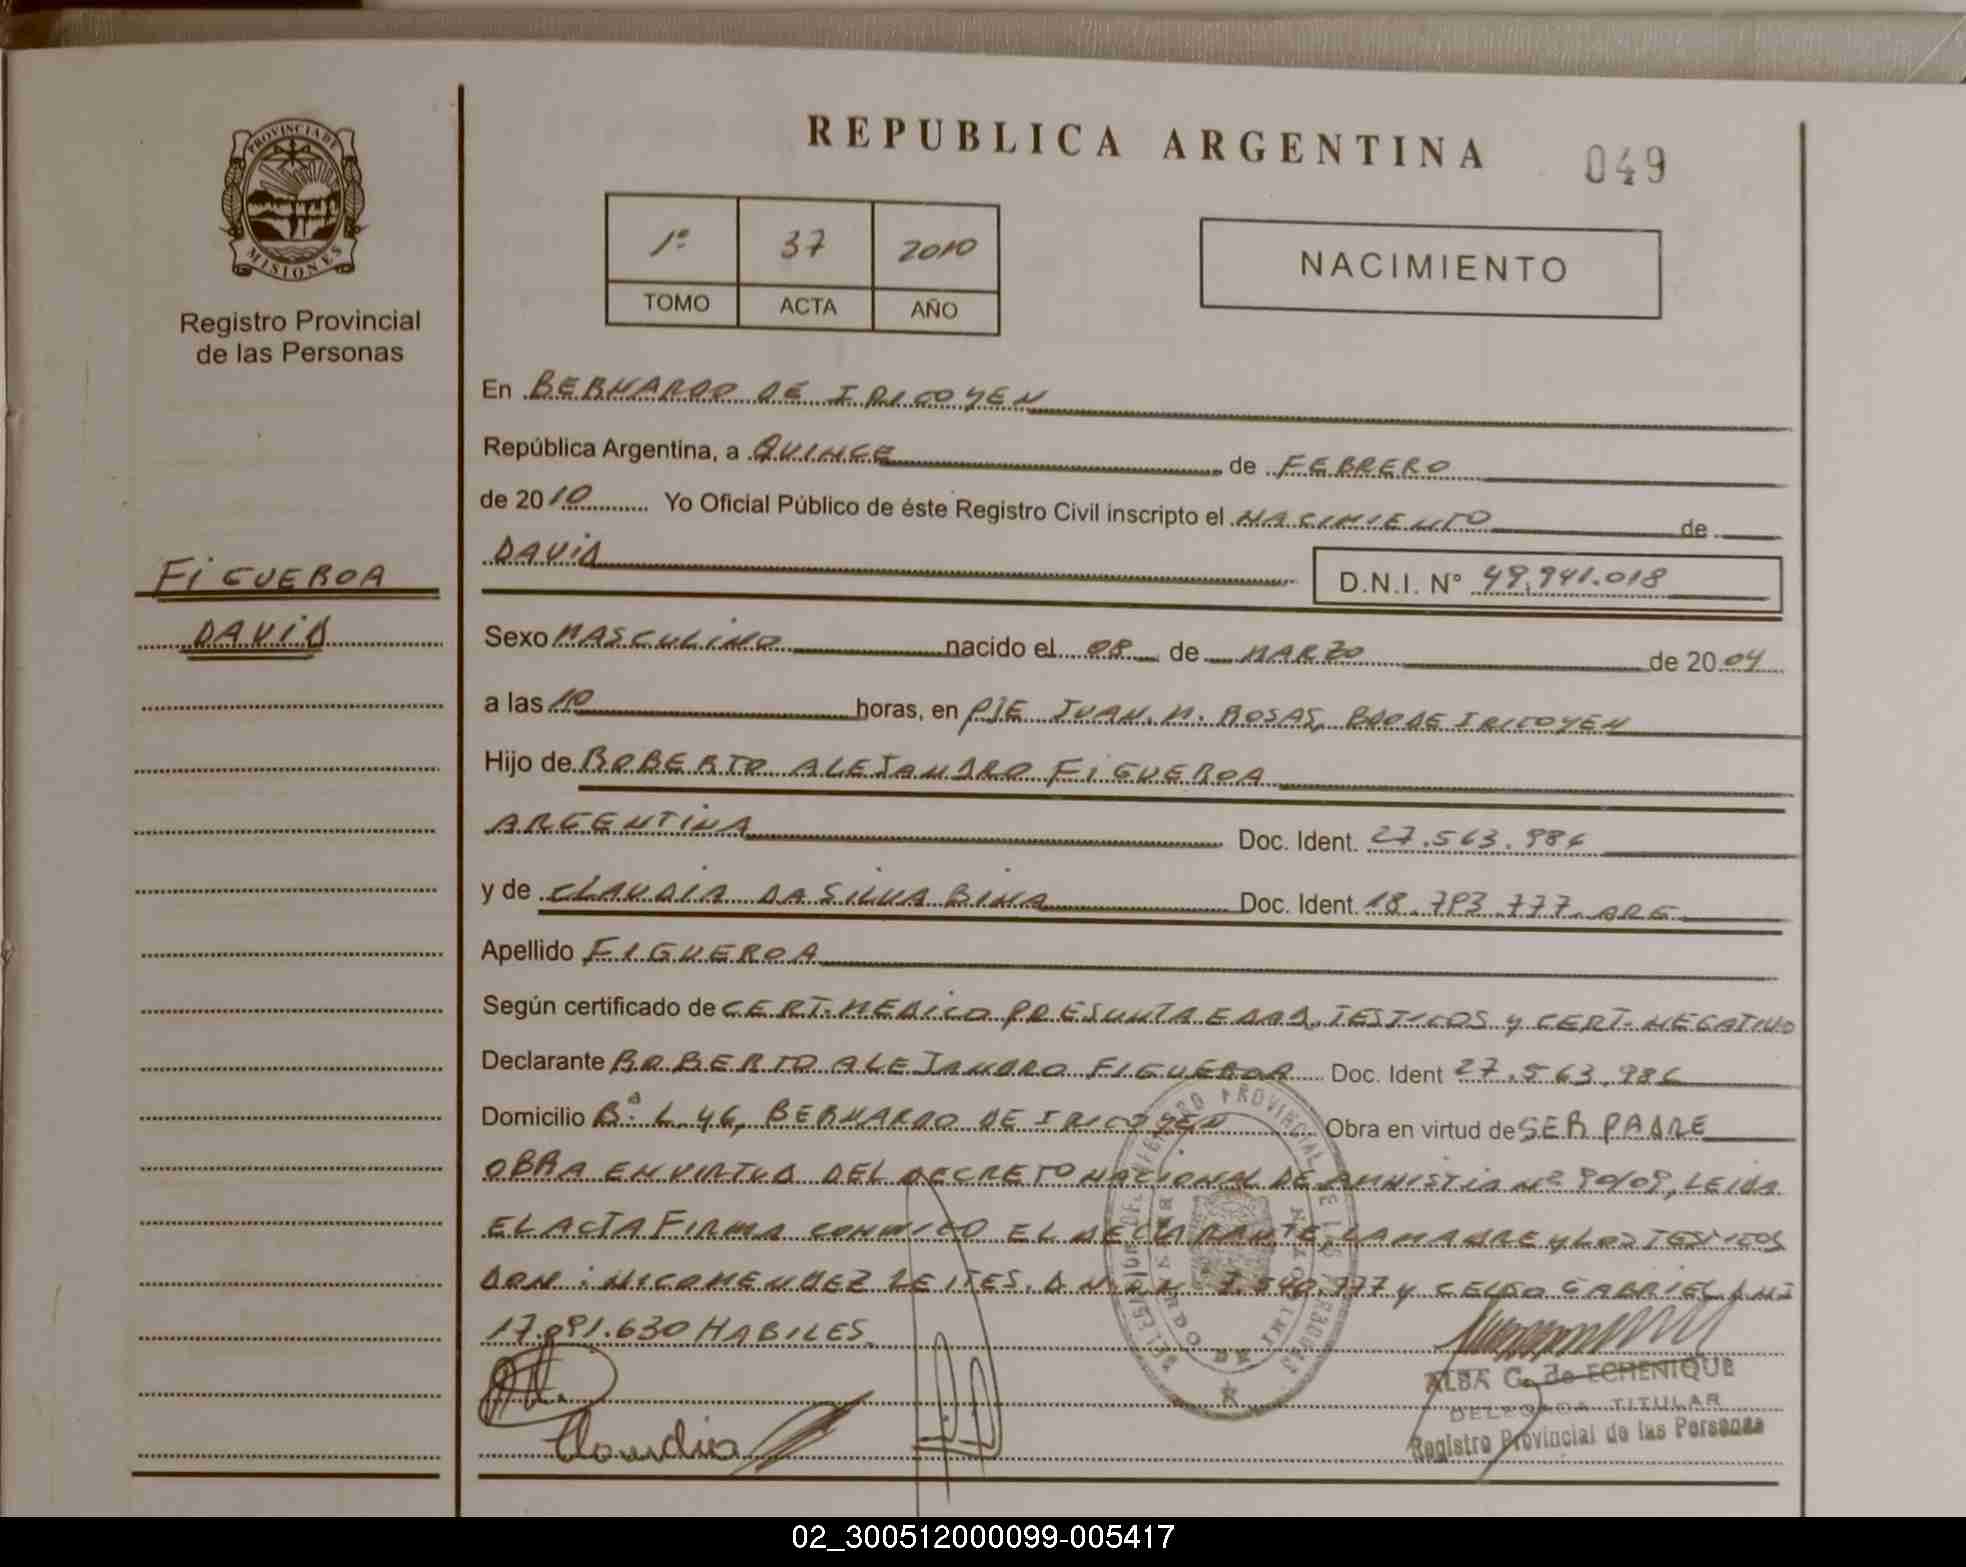 PROVINCIA DE
MISIONES
Registro Provincial
de las Personas
FIGUEROA
DAVID
REPUBLICA ARGENTINA 049
1º 37 2010
TOMO ACTA AÑO
NACIMIENTO
En BERNARDO DE IRIGOYEN
República Argentina, a QUINCE de FEBRERO
de 2010 Yo Oficial Público de éste Registro Civil inscripto el NACIMIENTO de
DAVID D.N.I. Nº 49.941.018
Sexo MASCULINO nacido el 08 de MARZO de 2004
a las 10 horas, en PJE JUAN. M. ROSAS, BDO DE IRIGOYEN
Hijo de ROBERTO ALEJANDRO FIGUEROA
ARGENTINA Doc. Ident. 27.563.986
y de CLAUDIA DA SILVA BINA Doc. Ident. 18.793.777. ARG
Apellido FIGUEROA
Según certificado de CERT. MEDICO PRESUNTA EDAD, TESTIGOS y CERT. NEGATIVO
Declarante ROBERTO ALEJANDRO FIGUEROA Doc. Ident 27.563.986
Domicilio Bº. L. 46, BERNARDO DE IRIGOYEN Obra en virtud de SER PADRE
OBRA EN VIRTUD DEL DECRETO NACIONAL DE AMNISTIA Nº 90/09, LEIDA
EL ACTA FIRMA CONMIGO EL DECLARANTE, LA MADRE y LOS TESTIGOS
DON: NICOMENDEZ LEITES. D.N.I. Nº 7.540.777 y CELSO GABRIEL DNI
17.091.630 HABILES.
Claudia
ALBA G. de ECHENIQUE
DELEGADA TITULAR
Registro Provincial de las Personas
02_300512000099-005417